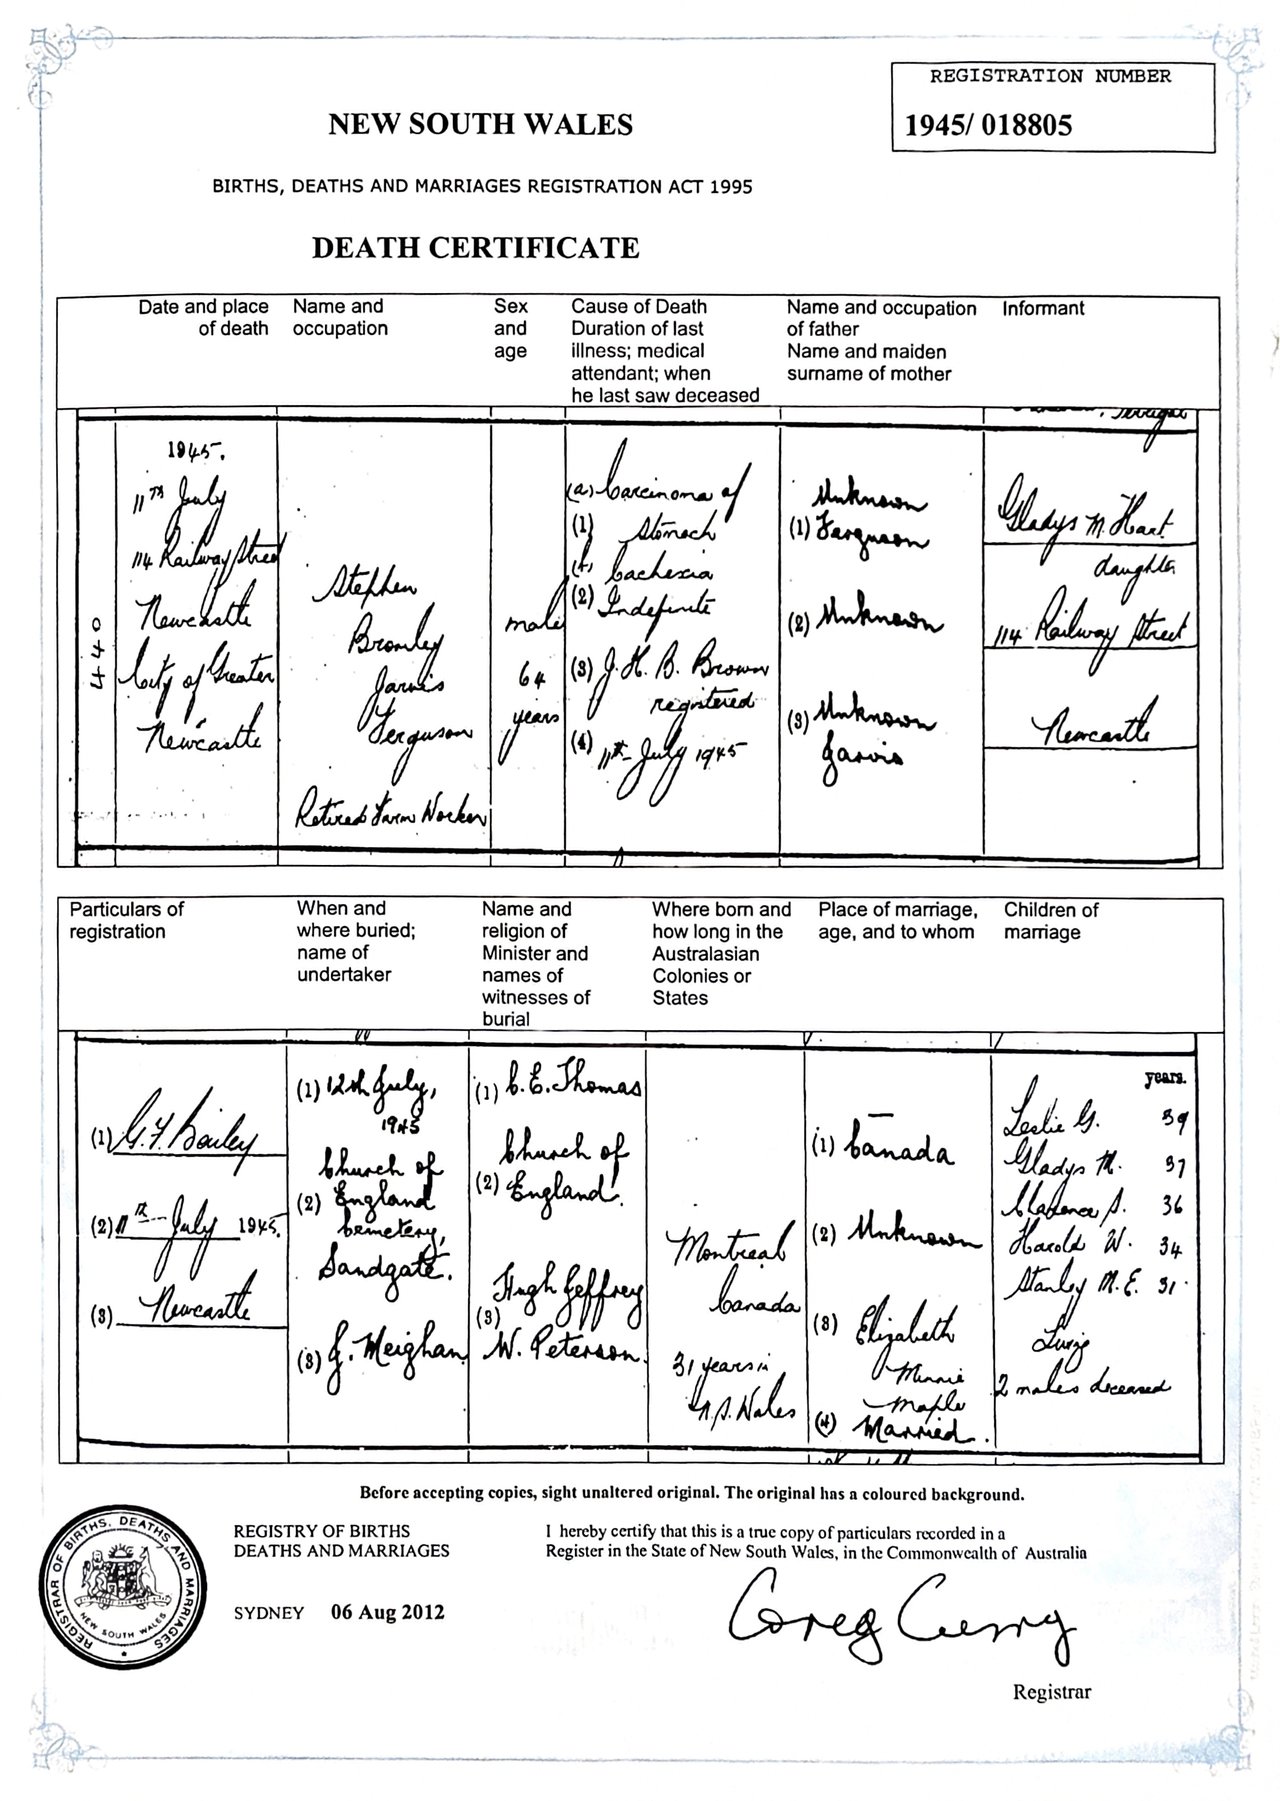 REGISTRATION NUMBER
1945/ 018805
NEW SOUTH WALES
BIRTHS, DEATHS AND MARRIAGES REGISTRATION ACT 1995
DEATH CERTIFICATE
Date and place
of death
Name and
occupation
Sex
and
age
Cause of Death
Duration of last
illness; medical
attendant; when
he last saw deceased
Name and occupation
of father
Name and maiden
surname of mother
Informant
440
1945.
11TH July
114 Railway Street
Newcastle
City of Greater
Newcastle
Stephen
Bromley
Jarvis
Ferguson
Retired Farm Worker
male
64
years
(a) Carcinoma of
(1) Stomach
Cachexia
(2) Indefinite
(3) J. H. B. Brown
registered
(4) 11th July 1945
Unknown
(1) Ferguson
(2) Unknown
(3) Unknown
Jarvis
Gladys M. Hart
daughter
114 Railway Street
Newcastle
Particulars of
registration
When and
where buried;
name of
undertaker
Name and
religion of
Minister and
names of
witnesses of
burial
Where born and
how long in the
Australasian
Colonies or
States
Place of marriage,
age, and to whom
Children of
marriage
(1) G. F. Bailey
(2) 11th July 1945.
(3) Newcastle
(1) 12th July,
1945
Church of
(2) England
Cemetery,
Sandgate.
(3) J. Meighan
(1) C. E. Thomas
Church of
(2) England.
Hugh Jeffrey
(3)
W. Peterson.
Montreal
Canada
31 years in
N.S. Wales
(1) Canada
(2) Unknown
(3) Elizabeth
Minnie
Maple
(4) Married.
years.
Leslie G. 39
Gladys M. 37
Clarence S. 36
Harold W. 34
Stanley M. E. 31
Living
2 males deceased
Before accepting copies, sight unaltered original. The original has a coloured background.
REGISTRAR OF BIRTHS, DEATHS AND MARRIAGES
NEW SOUTH WALES
REGISTRY OF BIRTHS
DEATHS AND MARRIAGES
SYDNEY 06 Aug 2012
I hereby certify that this is a true copy of particulars recorded in a
Register in the State of New South Wales, in the Commonwealth of Australia
Greg Curry
Registrar